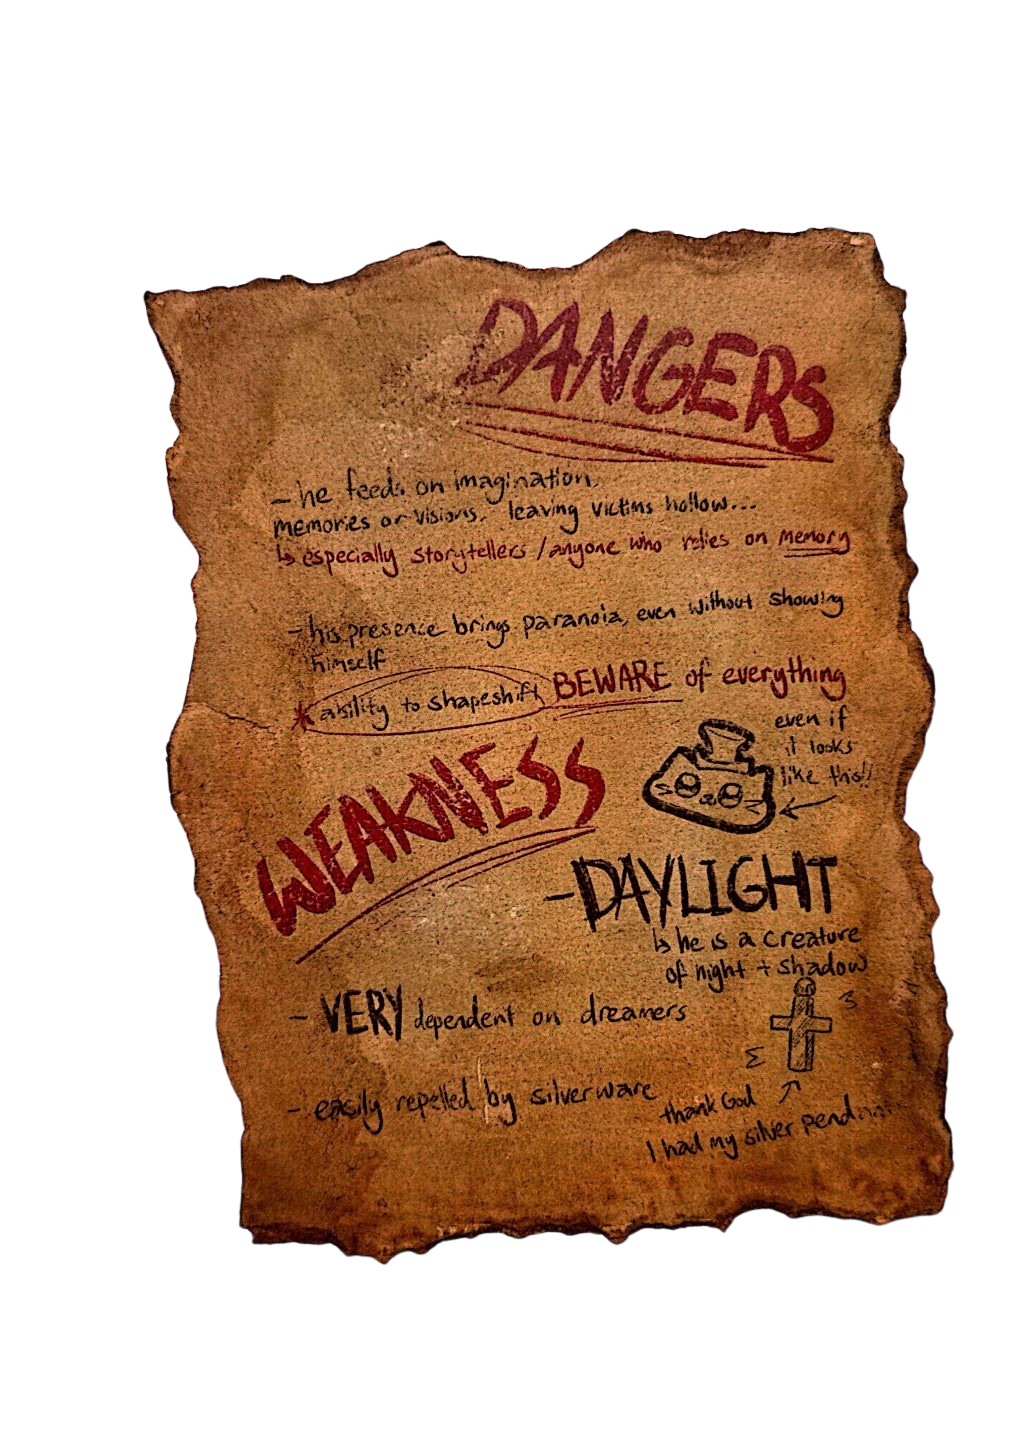 DANGERS
- he feeds on imagination,
memories or visions, leaving victims hollow...
↳ especially storytellers / anyone who relies on memory
- his presence brings paranoia, even without showing
himself
* ability to shapeshift BEWARE of everything
even if
it looks
like this!!
WEAKNESS
- DAYLIGHT
↳ he is a creature
of night + shadow
- VERY dependent on dreamers
- easily repelled by silverware
thank God
I had my silver pendant